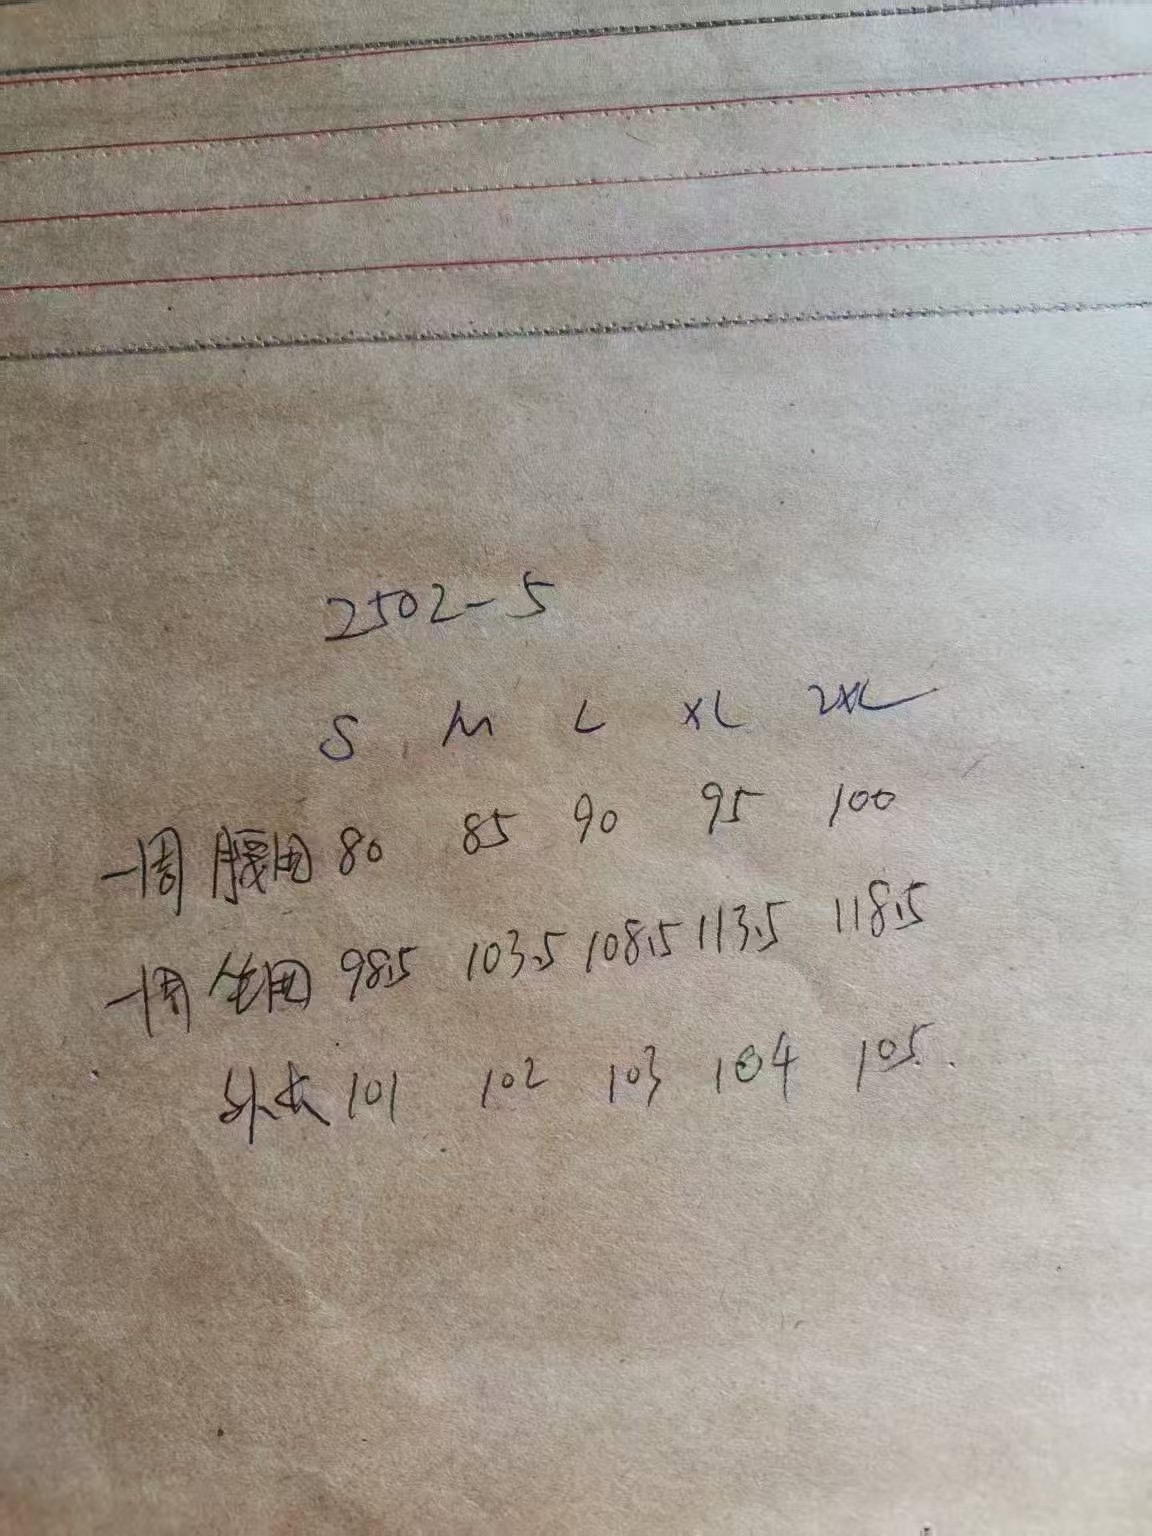 2502-5
S M L XL 2XL
一周 腰围 80 85 90 95 100
一周 全围 98.5 103.5 108.5 113.5 118.5
外长 101 102 103 104 105.